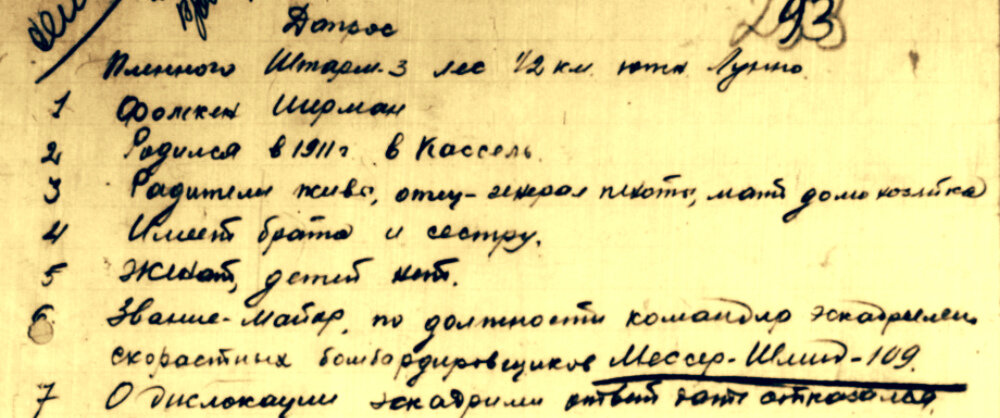 293
Допрос
Пленного Штарм-3 лес 1/2 км. южн Лунно.
1 Фолкен Шерман
2 Родился в 1911 г в Кассель.
3 Радители живы, отец-генерал пехоты, мать домохозяйка
4 Имеет брата и сестру.
5 Женат, детей нет.
6. Звание-майор, по должности командир эскадрильи
скорастных бомбардировщиков Мессер-Шмид-109.
7 О дислокации эскадрили ответ дать отказался